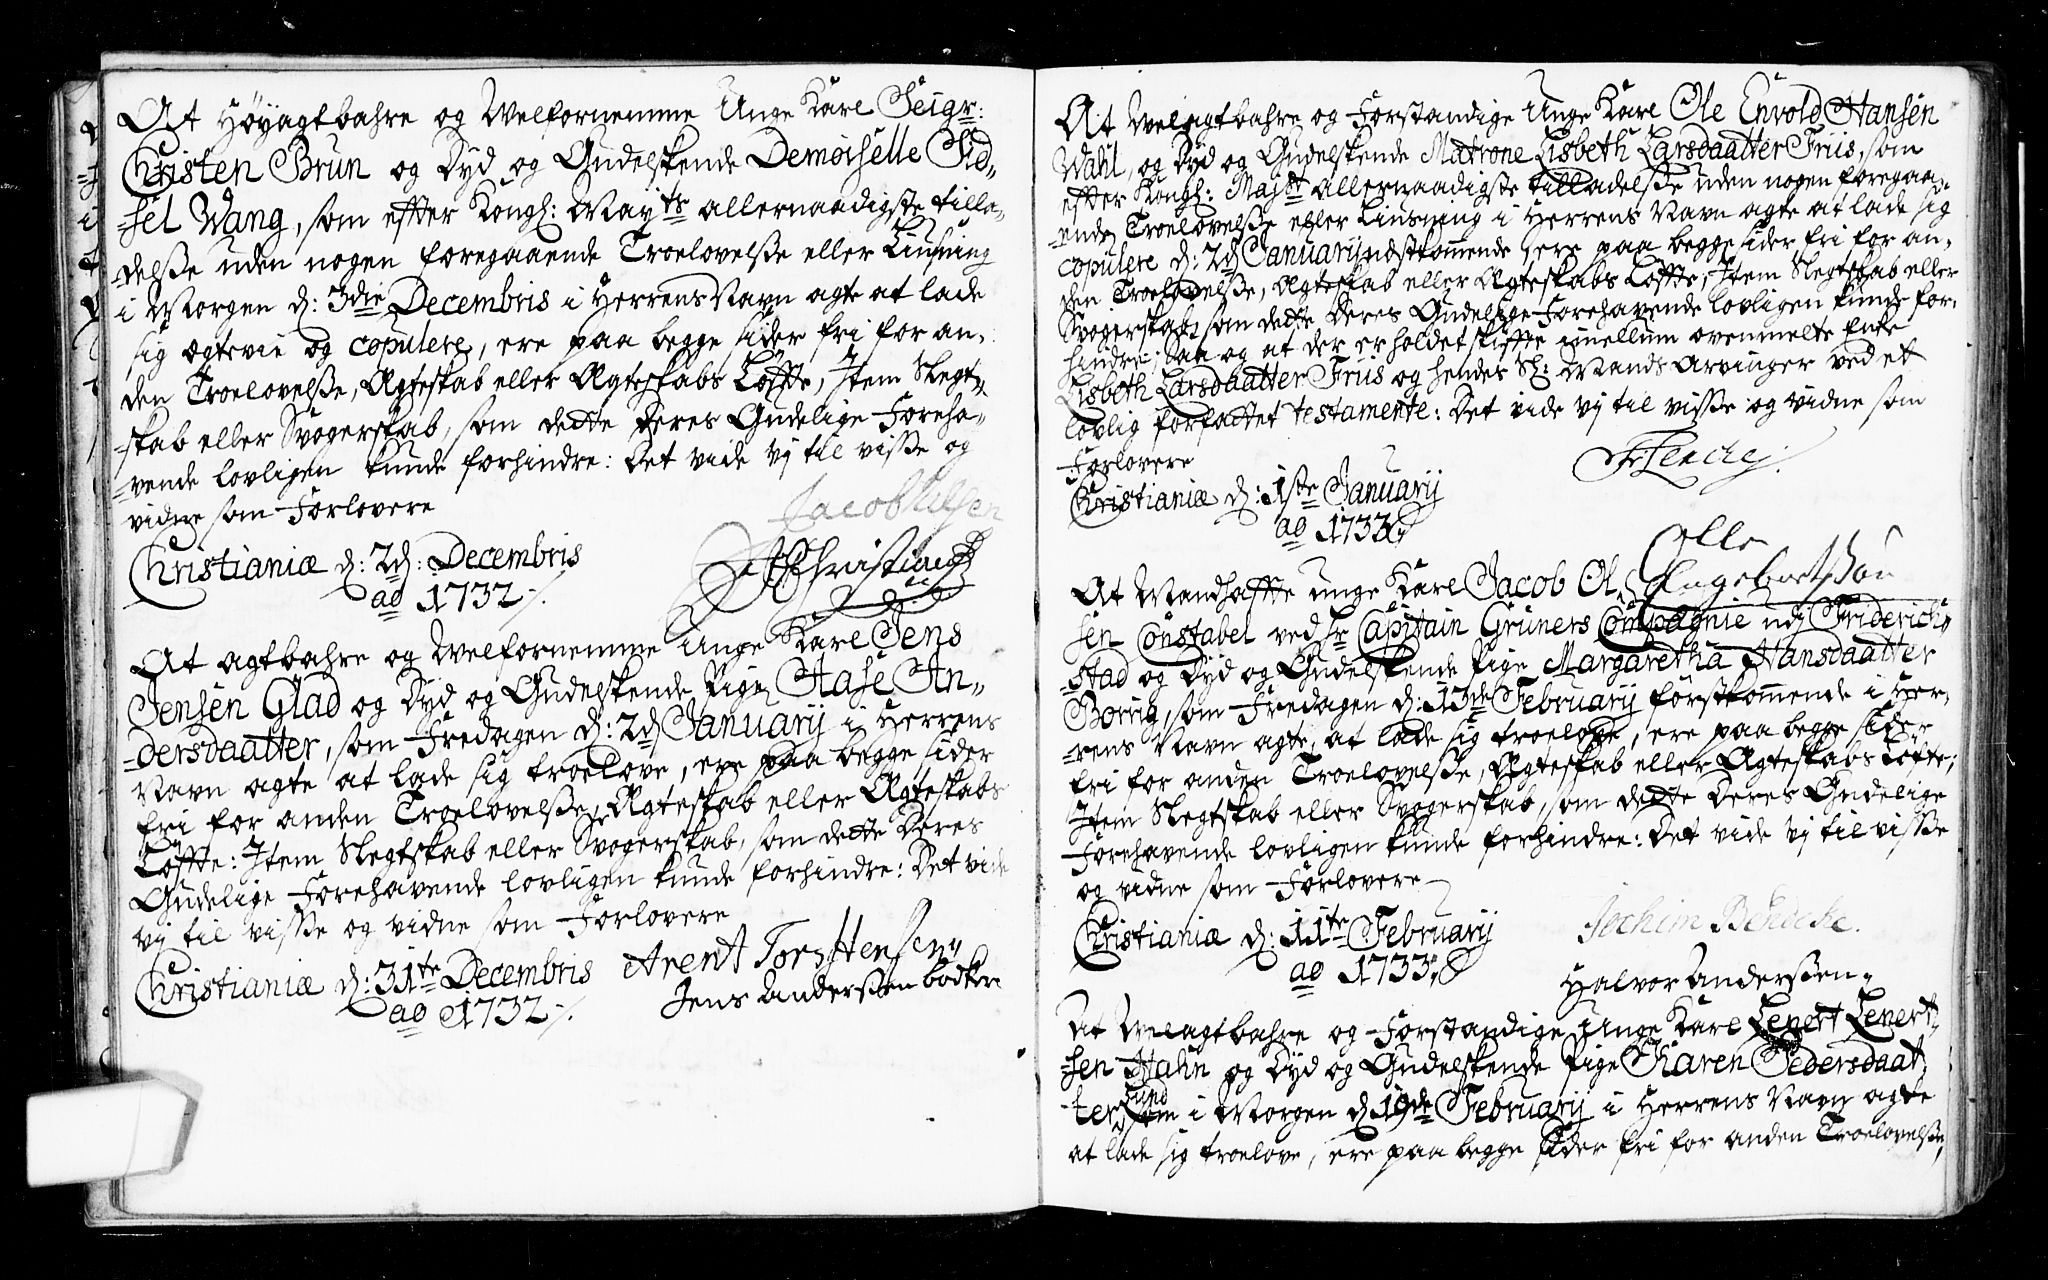 At Høyagtbahre og Welfornemme Unge Karl Seigr:
Christen Brun og Dyd og Gudelskende Demoiselle Sid-
-sel Wang, som efter Kongl: May:ts allernaadigste tilla-
-delsse uden nogen foregaaende Troelovelsse eller Liusning
i Morgen d: 3die Decembris i Herrens Navn agte at lade
sig ægtevie og copulere, ere paa begge sider fri for an-
den Troelovelsse, Ægteskab eller Ægteskabs Løffte, Item Slegt-
-skab eller Svogerskab, som dette Deres Gudelige Foreha-
-vende lovligen kunde forhindre: Det vide vij til visse og
vidne som Forlovere
Jacob Ulsen
Christianiæ d: 2d: Decembris
ao 1732
At agtbahre og Welfornemme Unge Karl Jens
Jensen Glad og Dyd og Gudelskende Pige Aase An-
-dersdaatter, som Fredagen d: 2d Januarij i Herrens
Navn agte at lade sig troelove, ere paa begge sider
fri for anden Troelovelsse, Ægteskab eller Ægteskabs
Løffte: Item Slegtskab eller Svogerskab, som dette Deres
Gudelige Forehavende lovligen kunde forhindre: Det vide
vij til visse og vidne som Forlovere
Christianiæ d: 31te Decembris
ao 1732
Arent Torstensen
Jens Anderssen bødker
At Welagtbahre og Forstandige Unge Karl Ole Envold Hansen
Wahl, og Dyd og Gudelskende Matrone Lisbeth Larsdaatter Friis, som
efter Kongl: Majst allernaadigste tilladelsse uden nogen foregaa-
-ende Troelovelsse eller Liusning i Herrens Navn agte at lade sig
copulere d: 2d Januarij nestkommende, ere paa begge sider fri for an-
den Troelovelsse, Ægteskab eller Ægteskabs Løffte, Item Slegtskab eller
Svogerskab, som dette Deres Gudelige Forehavende lovligen kunde for-
hindre; Saa og at der er holdet skiffte imellum ovenmelte Enke
Lisbeth Larsdaatter Friis og hendes Sl: Mands Arvinger ved et
lovlig forfattet testamente: Det vide vij til visse og vidne som
Forlovere
Christianiæ d: 1ste Januarij
ao 1733
Olle
Engebretsøn
At Mandhaffte unge Karl Jacob Ol-
sen Constabel ved Hr Capitain Grüners Compagnie udj Friderich-
-stad og Dyd og Gudelskende Pige Margaretha Hansdaatter
Borrig, som Fredagen d: 13de Februarij førstkommende i Her-
-rens Navn agte, at lade sig troelove, ere paa begge sider
fri for anden Troelovelsse, Ægteskab eller Ægteskabs Løfte;
Item Slegtskab eller Svogerskab, som dette Deres Gudelige
Forehavende lovligen kunde forhindre: Det vide vij til visse
og vidne som Forlovere
Christianiæ d: 11te Februarij
ao 1733
Jochim Bendeke.
Halvor Anderssen
At Welagtbahre og Forstandige Unge Karl Lenert Lenert-
-sen Hahn og Dyd og Gudelskende Pige Karen Pedersdaat-
-ter Lund som i Morgen d 19de Februarij i Herrens Navn agte
at lade sig troelove, ere paa begge sider fri for anden Troelovelsse,